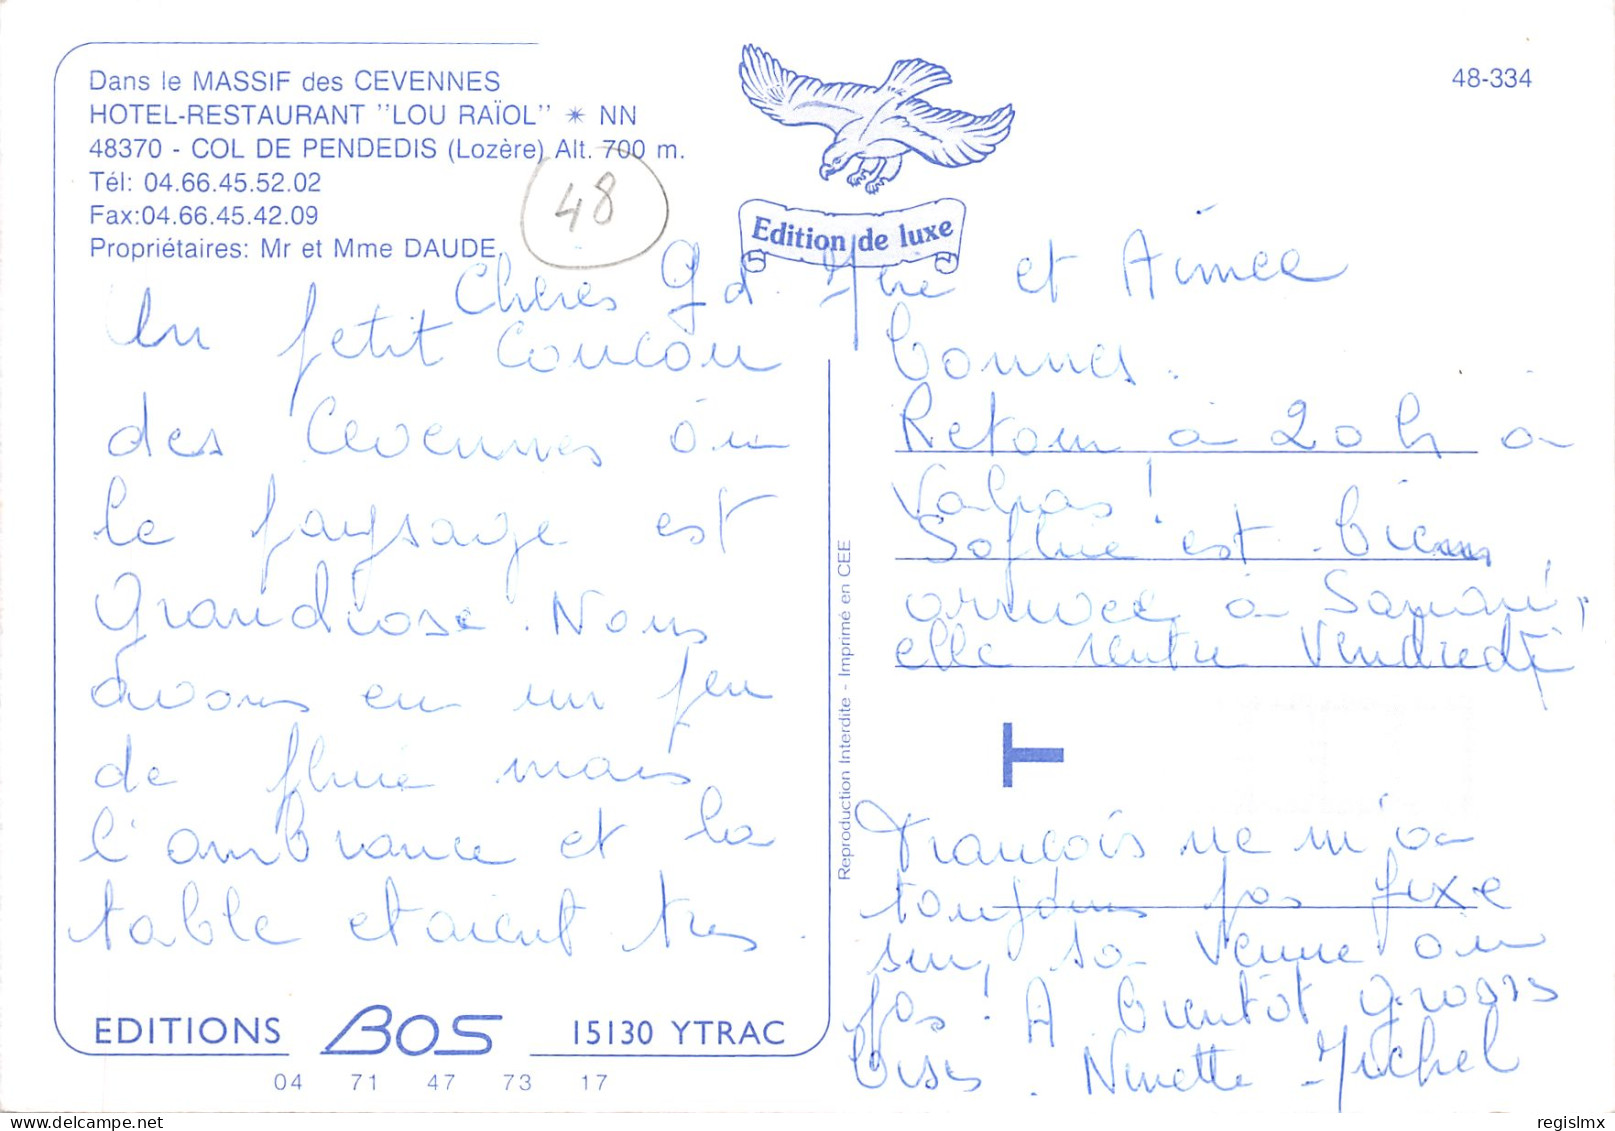 Dans le MASSIF des CEVENNES
HOTEL-RESTAURANT "LOU RAÏOL" ✳ NN
48370 - COL DE PENDEDIS (Lozère) Alt. 700 m.
Tél: 04.66.45.52.02
Fax:04.66.45.42.09
Propriétaires: Mr et Mme DAUDE
48
Edition de luxe
48-334
Chères Gd. Mère et Aimée
Un petit Coucou
des Cevennes où
le paysage est
Grandiose. Nous
avons eu un peu
de pluie mais
l'ambiance et la
table etaient très
bonnes.
Retour à 20h à
Valras!
Sophie est bien
arrivée à Sanari,
elle rentre Vendredi
François ne m'a
toujours pas fixé
sur sa venue ou
pas! A bientôt grosses
bises. Ninette Michel
T
Reproduction Interdite - Imprimé en CEE
EDITIONS BOS 15130 YTRAC
04 71 47 73 17
regislmx